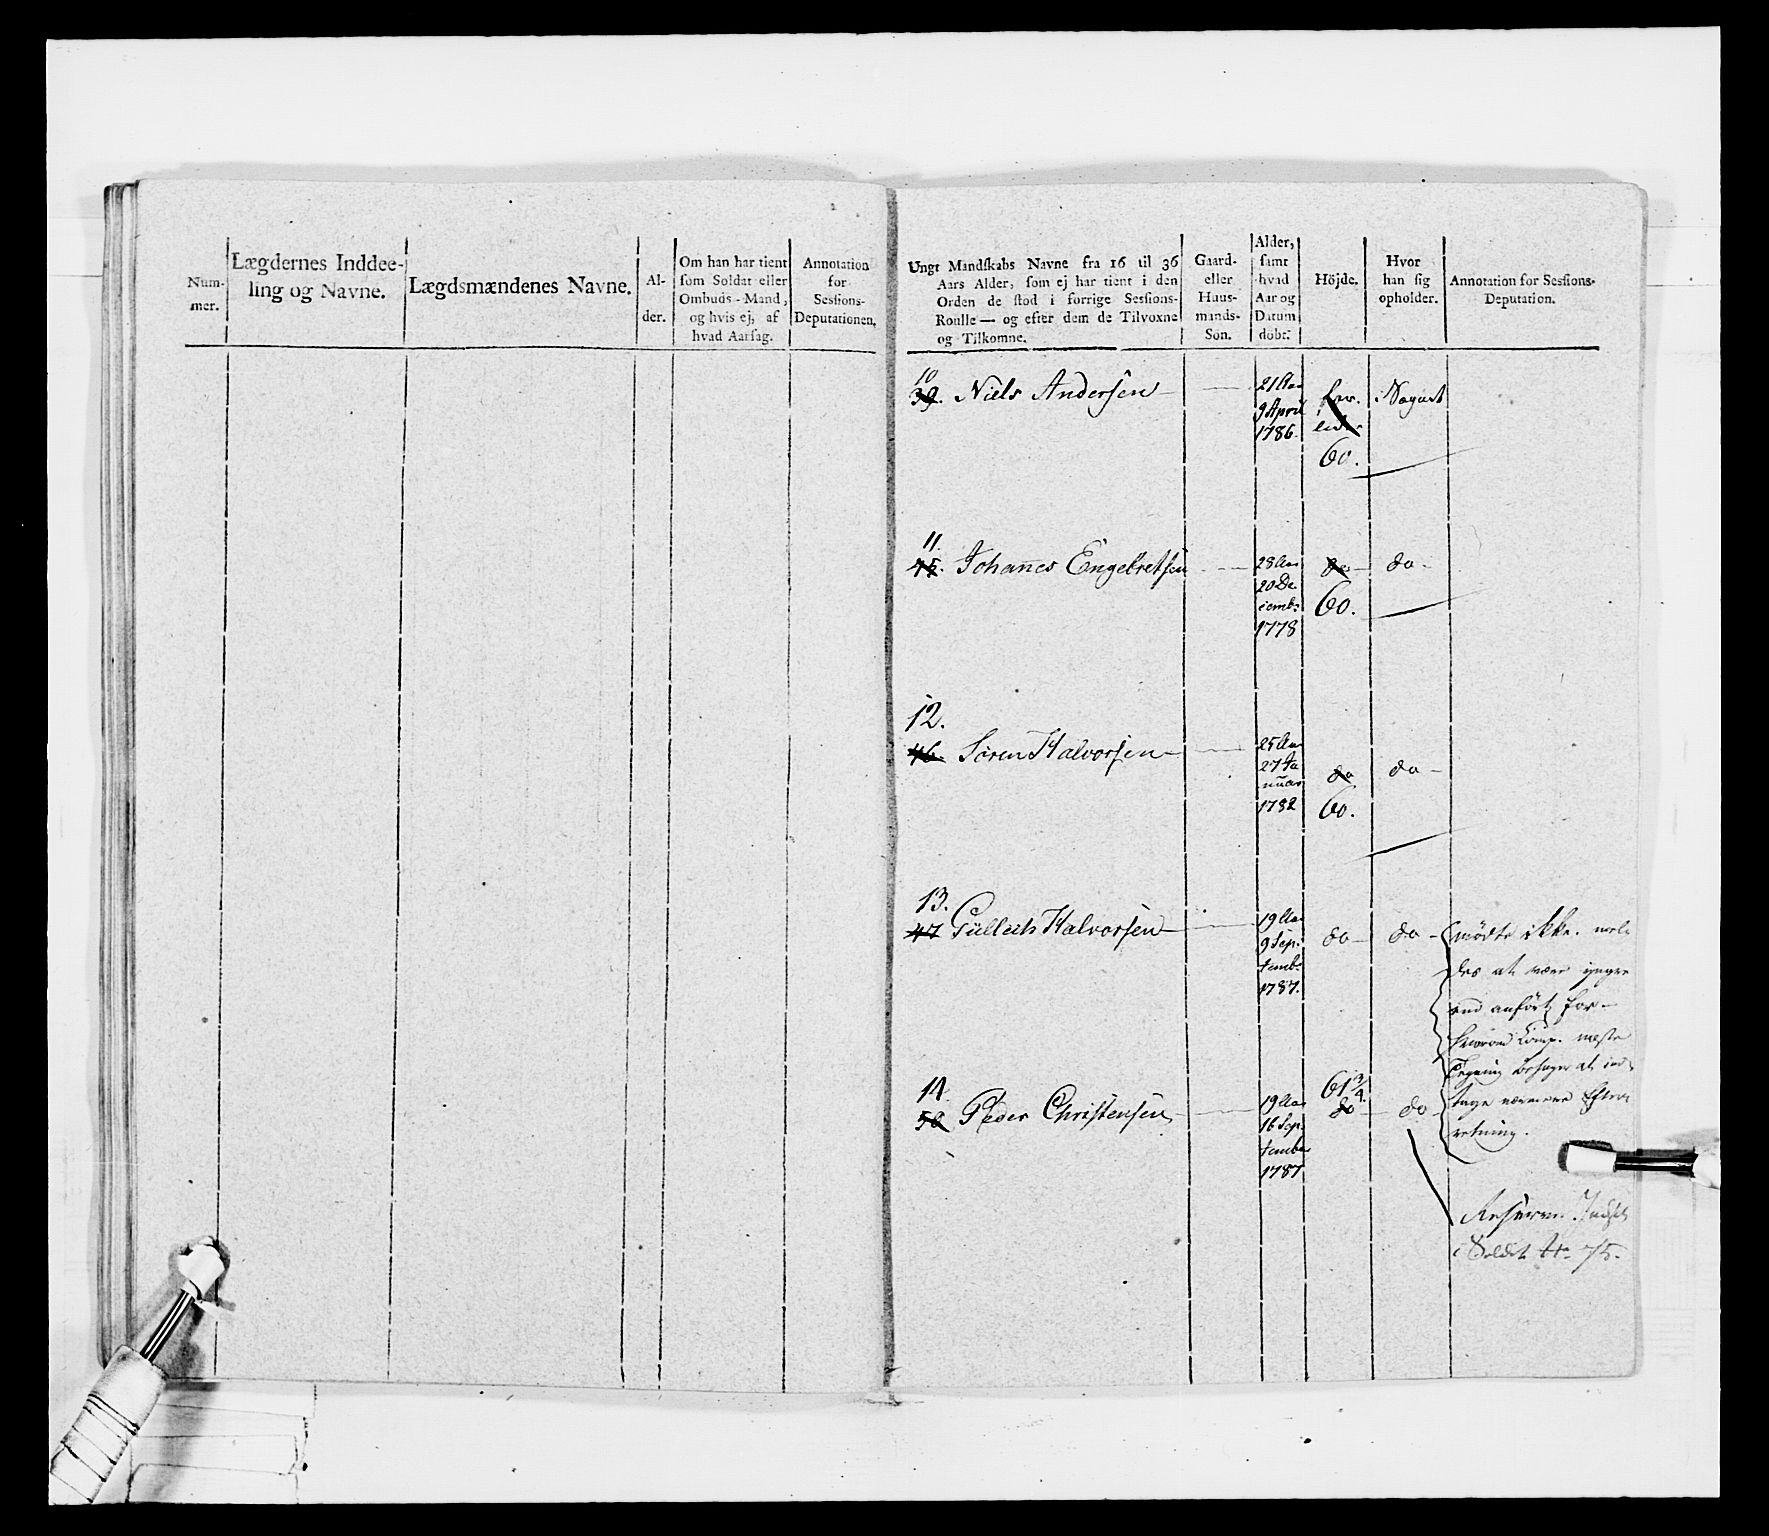 Num-
mer.
Lægdernes Inddee-
ling og Navne.
Lægdsmændenes Navne.
Al-
der.
Om han har tient
som Soldat eller
Ombuds-Mand,
og hvis ej, af
hvad Aarsag.
Annotation
for
Sessions-
Deputationen.
Ungt Mandskabs Navne fra 16 til 36
Aars Alder, som ej har tient i den
Orden de stod i forrige Sessions-
Roulle — og efter dem de Tilvoxne
og Tilkomne.
Gaard-
eller
Huus-
mands-
Søn.
Alder,
samt
hvad
Aar og
Datum
døbt.
Höjde.
Hvor
han sig
opholder.
Annotation for Sessions-
Deputation.
10
39. Niels Andersen
21 Aar
9 April
1786.
60.
11.
45. Johannes Engebretsen
28 Aar
20 De
cemb:
1778
do
60.
do
12.
46. Søren Halvorsen
25 Aar
27 Ja
nuar
1782
do
60.
do
13.
47 Gulleih Halvorsen
19 Aar
9 Sep.
temb:
1787.
do
do
mødte ikke. mel
des at være yngre
end anført, for-
Comp. næste
at ind
tage nærmere Efter
retning.
14.
50 Peder Christensen
19 Aar
16 Sep.
tember
1787
61 3/4.
do
do
Reserve.
i Soldet No 75.